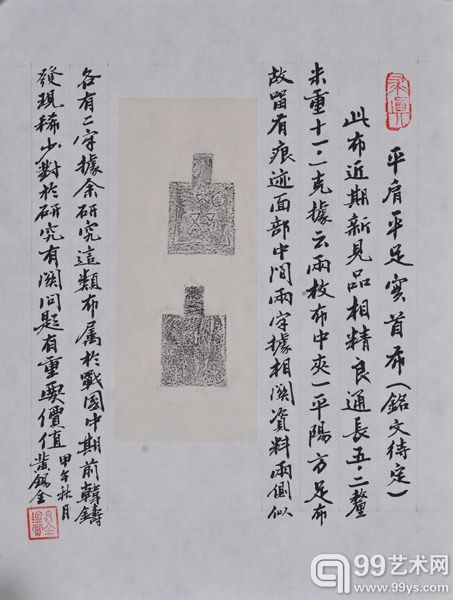 平肩平足实首布(銘文待定)
此布近期新見品相精良通長五·二釐
米重十一·二克據云兩枚布中夾一平陽方足布
故留有痕迹面部中间兩字據相関資料兩側似
各有二字據余研究這類布属於戰國中期前韓鑄
發现稀少對於研究有関问题有重要價值
甲午秋月
黄錫全
99艺术网
www.99ys.com